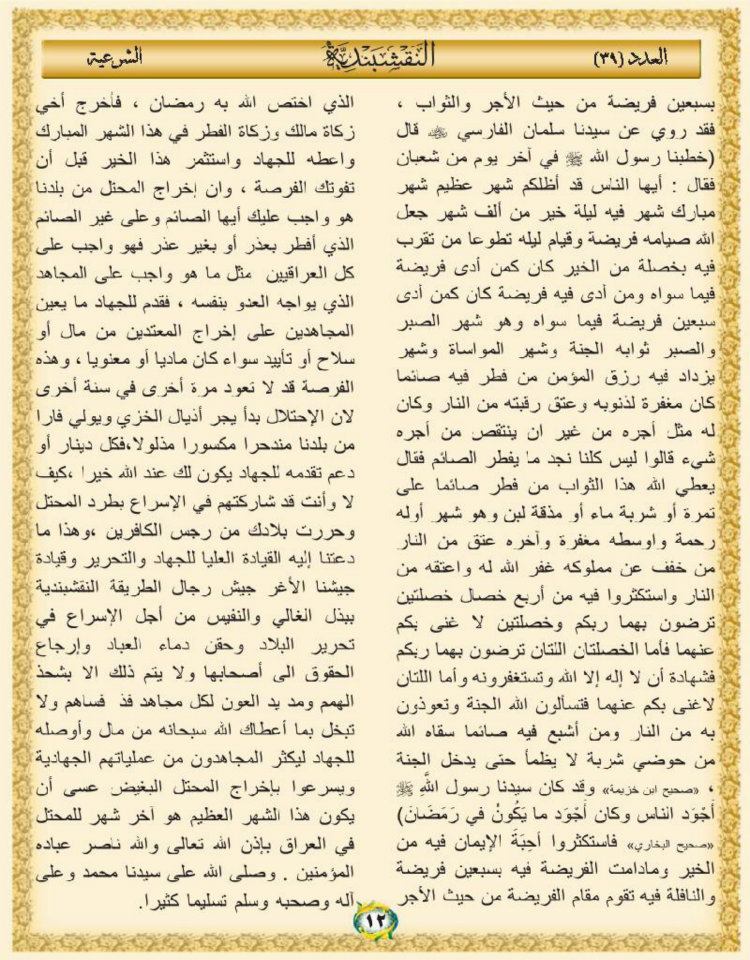 العدد (٣٩)
النقشبندية
الشرعية
بسبعين فريضة من حيث الأجر والثواب ،
فقد روي عن سيدنا سلمان الفارسي ﷺ قال
(خطبنا رسول الله ﷺ في آخر يوم من شعبان
فقال : أيها الناس قد أظلكم شهر عظيم شهر
مبارك شهر فيه ليلة خير من ألف شهر جعل
الله صيامه فريضة وقيام ليله تطوعا من تقرب
فيه بخصلة من الخير كان كمن أدى فريضة
فيما سواه ومن أدى فيه فريضة كان كمن أدى
سبعين فريضة فيما سواه وهو شهر الصبر
والصبر ثوابه الجنة وشهر المواساة وشهر
يزداد فيه رزق المؤمن من فطر فيه صائما
كان مغفرة لذنوبه وعتق رقبته من النار وكان
له مثل أجره من غير ان ينتقص من أجره
شيء قالوا ليس كلنا نجد ما يفطر الصائم فقال
يعطي الله هذا الثواب من فطر صائما على
تمرة أو شربة ماء أو مذقة لبن وهو شهر أوله
رحمة واوسطه مغفرة وآخره عتق من النار
من خفف عن مملوكه غفر الله له واعتقه من
النار واستكثروا فيه من أربع خصال خصلتين
ترضون بهما ربكم وخصلتين لا غنى بكم
عنهما فأما الخصلتان اللتان ترضون بهما ربكم
فشهادة أن لا إله إلا الله وتستغفرونه وأما اللتان
لاغنى بكم عنهما فتسألون الله الجنة وتعوذون
به من النار ومن أشبع فيه صائما سقاه الله
من حوضي شربة لا يظمأ حتى يدخل الجنة
، «صحيح ابن خزيمة» وقد كان سيدنا رسول اللهِ ﷺ
أجْوَد الناس وكان أجْوَد ما يَكُونُ في رَمَضَانَ)
«صحيح البخاري» فاستكثروا أحِبَةَ الإيمان فيه من
الخير ومادامت الفريضة فيه بسبعين فريضة
والنافلة فيه تقوم مقام الفريضة من حيث الأجر
الذي اختص الله به رمضان ، فأخرج أخي
زكاة مالك وزكاة الفطر في هذا الشهر المبارك
واعطه للجهاد واستثمر هذا الخير قبل أن
تفوتك الفرصة ، وان إخراج المحتل من بلدنا
هو واجب عليك أيها الصائم وعلى غير الصائم
الذي أفطر بعذر أو بغير عذر فهو واجب على
كل العراقيين مثل ما هو واجب على المجاهد
الذي يواجه العدو بنفسه ، فقدم للجهاد ما يعين
المجاهدين على إخراج المعتدين من مال أو
سلاح أو تأييد سواء كان ماديا أو معنويا ، وهذه
الفرصة قد لا تعود مرة أخرى في سنة أخرى
لان الإحتلال بدأ يجر أذيال الخزي ويولي فارا
من بلدنا مندحرا مكسورا مذلولا،فكل دينار أو
دعم تقدمه للجهاد يكون لك عند الله خيرا ،كيف
لا وأنت قد شاركتهم في الإسراع بطرد المحتل
وحررت بلادك من رجس الكافرين ،وهذا ما
دعتنا إليه القيادة العليا للجهاد والتحرير وقيادة
جيشنا الأغر جيش رجال الطريقة النقشبندية
ببذل الغالي والنفيس من أجل الإسراع في
تحرير البلاد وحقن دماء العباد وإرجاع
الحقوق الى أصحابها ولا يتم ذلك الا بشحذ
الهمم ومد يد العون لكل مجاهد فذ فساهم ولا
تبخل بما أعطاك الله سبحانه من مال وأوصله
للجهاد ليكثر المجاهدون من عملياتهم الجهادية
ويسرعوا بإخراج المحتل البغيض عسى أن
يكون هذا الشهر العظيم هو آخر شهر للمحتل
في العراق بإذن الله تعالى والله ناصر عباده
المؤمنين . وصلى الله على سيدنا محمد وعلى
آله وصحبه وسلم تسليما كثيرا.
١٢